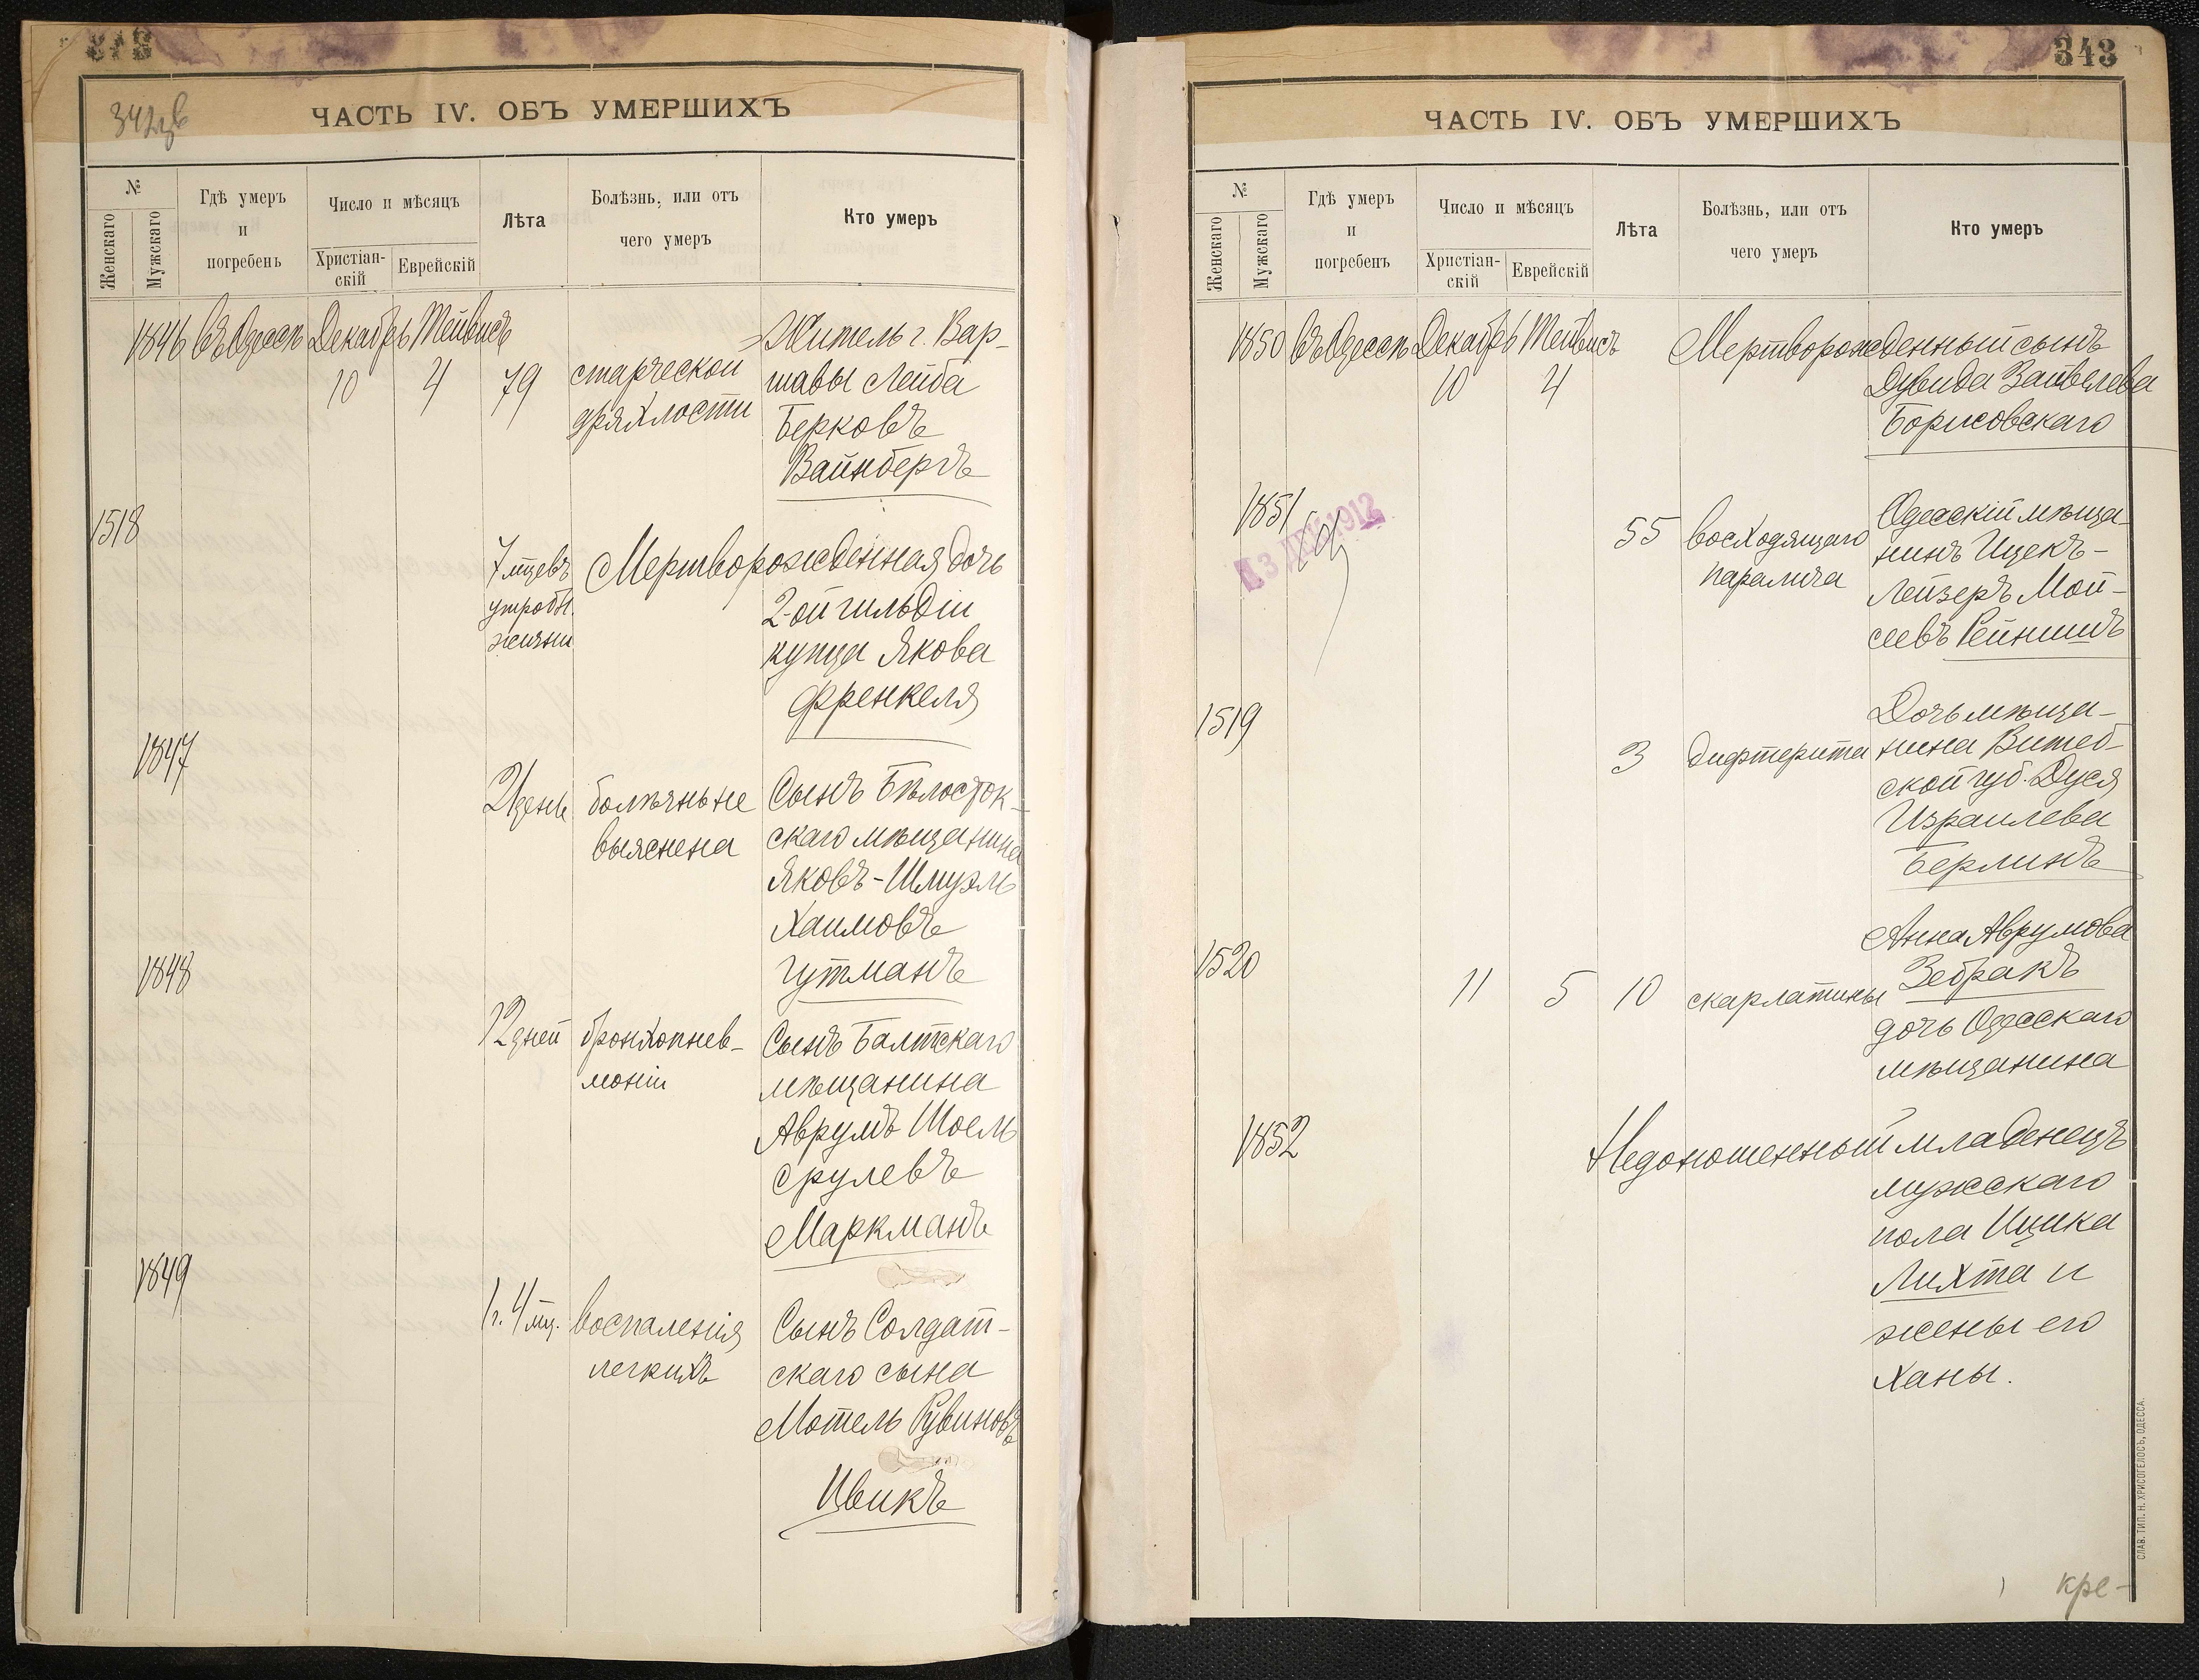 342об
ЧАСТЬ IV. ОБЪ УМЕРШИХЪ
№
Женскаго
Мужскаго
Гдѣ умеръ
и
погребенъ
Число и мѣсяцъ
Христіан-
скій
Еврейскій
Лѣта
Болѣзнь, или отъ
чего умеръ
Кто умеръ
1846 въ Одессѣ Декабрь Тейвисъ
10 4 79 старческой
дряхлости
Житель г. Вар-
шавы Лейба
Берковъ
Вайнбергъ
1518
7 мцевъ
утробн.
жизни
Мертворожденная дочь
2-ой гильдіи
купца Якова
Френкеля
1847
21 день
болѣзнь не
выяснена
Сынъ Бѣлосток-
скаго мѣщанина
Яковъ-Шмуэль
Хаимовъ
Гутманъ
1848
12 дней
бронхопнев-
моніи
Сынъ Балтскаго
мѣщанина
Аврумъ Шоель
Срулевъ
Маркманъ
1849
1 г. 4 мц.
воспаленія
легкихъ
Сынъ Солдат-
скаго сына
Мотель Рувиновъ
Цвикъ
343
ЧАСТЬ IV. ОБЪ УМЕРШИХЪ
№
Женскаго
Мужскаго
Гдѣ умеръ
и
погребенъ
Число и мѣсяцъ
Христіан-
скій
Еврейскій
Лѣта
Болѣзнь, или отъ
чего умеръ
Кто умеръ
1850 въ Одессѣ Декабрь Тейвисъ
10 4
Мертворожденный сынъ
Дувида Зайвелева
Борисовскаго
1851
13 ДЕК 1912
55 восходящаго
паралича
Одесскій мѣща-
нинъ Ицекъ-
Лейзеръ Мой-
сеевъ Рейншъ
1519
3 дифтерита
Дочь мѣща-
нина Витеб-
ской губ. Дуся
Израилева
Берлинъ
1520
11 5 10 скарлатины
Анна Аврумова
Зебракъ
дочь Одесскаго
мѣщанина
1852
Недоношенный младенецъ
мужскаго
пола Ицика
Лихта и
жены его
Ханы.
СЛАВ. ТИП. Н. ХРИСОГЕЛОСЪ, ОДЕССА.
кре-